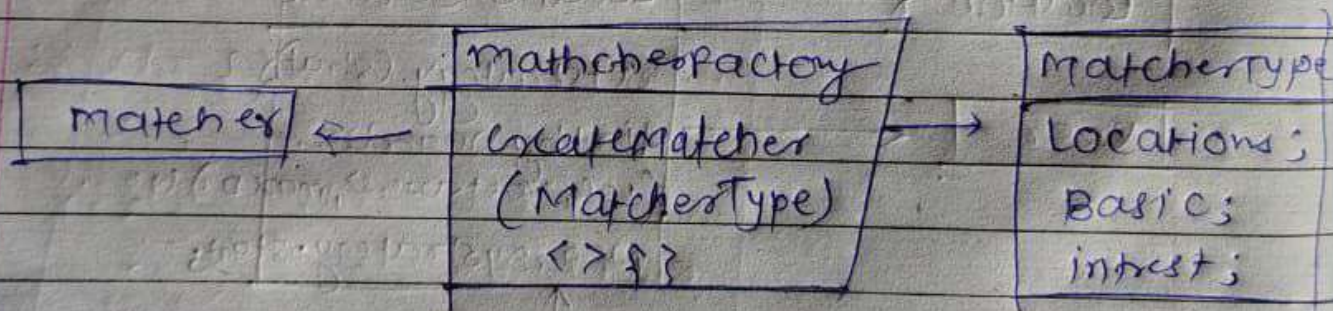 matcher
mathcheofactory
creatematcher
(MatcherType)
< > { }
MatcherType
Locations;
Basic;
intrest;